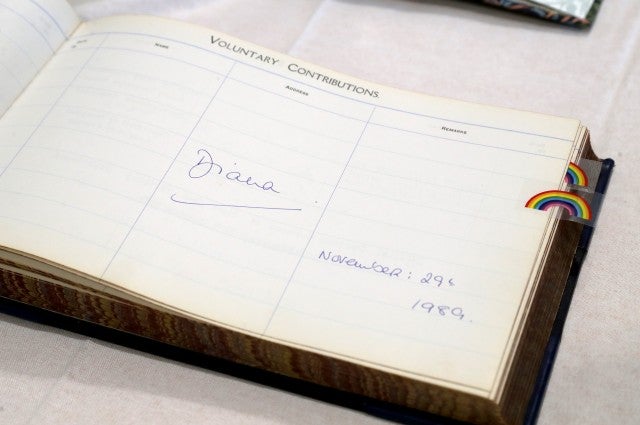 VOLUNTARY CONTRIBUTIONS
NAME
ADDRESS
REMARKS
Diana
November: 29th
1989.